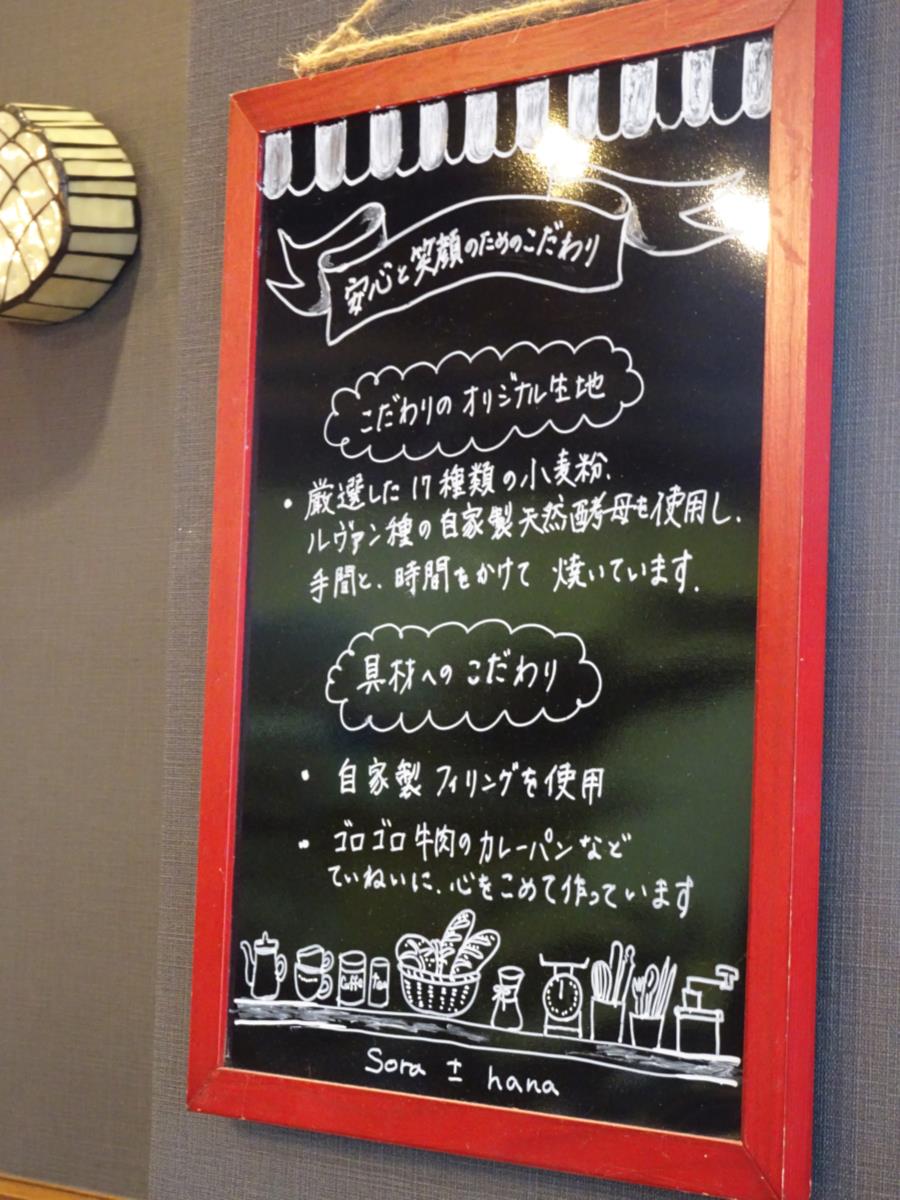 安心と笑顔のためのこだわり
こだわりの オリジナル生地
・厳選した 17種類の小麦粉、
ルヴァン種の自家製天然酵母を使用し、
手間と、時間をかけて 焼いています。
具材への こだわり
・自家製 フィリングを使用
・ゴロゴロ牛肉のカレーパンなど
ていねいに、心をこめて作っています
Coffe
Tea
Sora ± hana